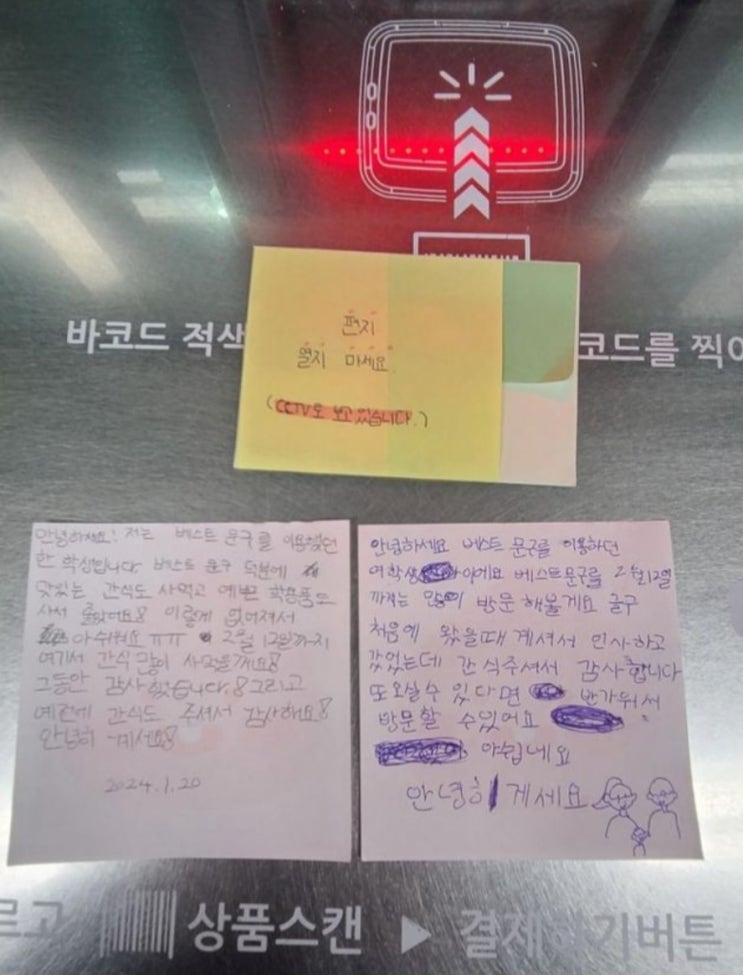 바코드 적색
코드를 찍어
편지
열지 마세요.
(CCTV로 보고 있습니다.)
안녕하세요! 저는 베스트 문구를 이용했던
한 학생입니다 베스트 문구 덕분에
맛있는 간식도 사먹고 예쁜 학용품도
사서 좋았어요! 이렇게 없어져서
아쉬워요 ㅠㅠ 2월 12일까지
여기서 간식 많이 사먹을께요!
그동안 감사했습니다! 그리고
예전에 간식도 주셔서 감사해요!
안녕히 계세요!
2024.1.20
안녕하세요 베스트 문구를 이용하던
여학생 이에요 베스트문구를 2월12일
까지는 많이 방문 해올게요
처음에 왔을때 계셔서 인사하고
갔었는데 간식주셔서 감사합니다
또오실수 있다면 반가워서
방문할 수있어요
아쉽네요
안녕히 게세요
르고 상품스캔 ▶ 결제하기버튼